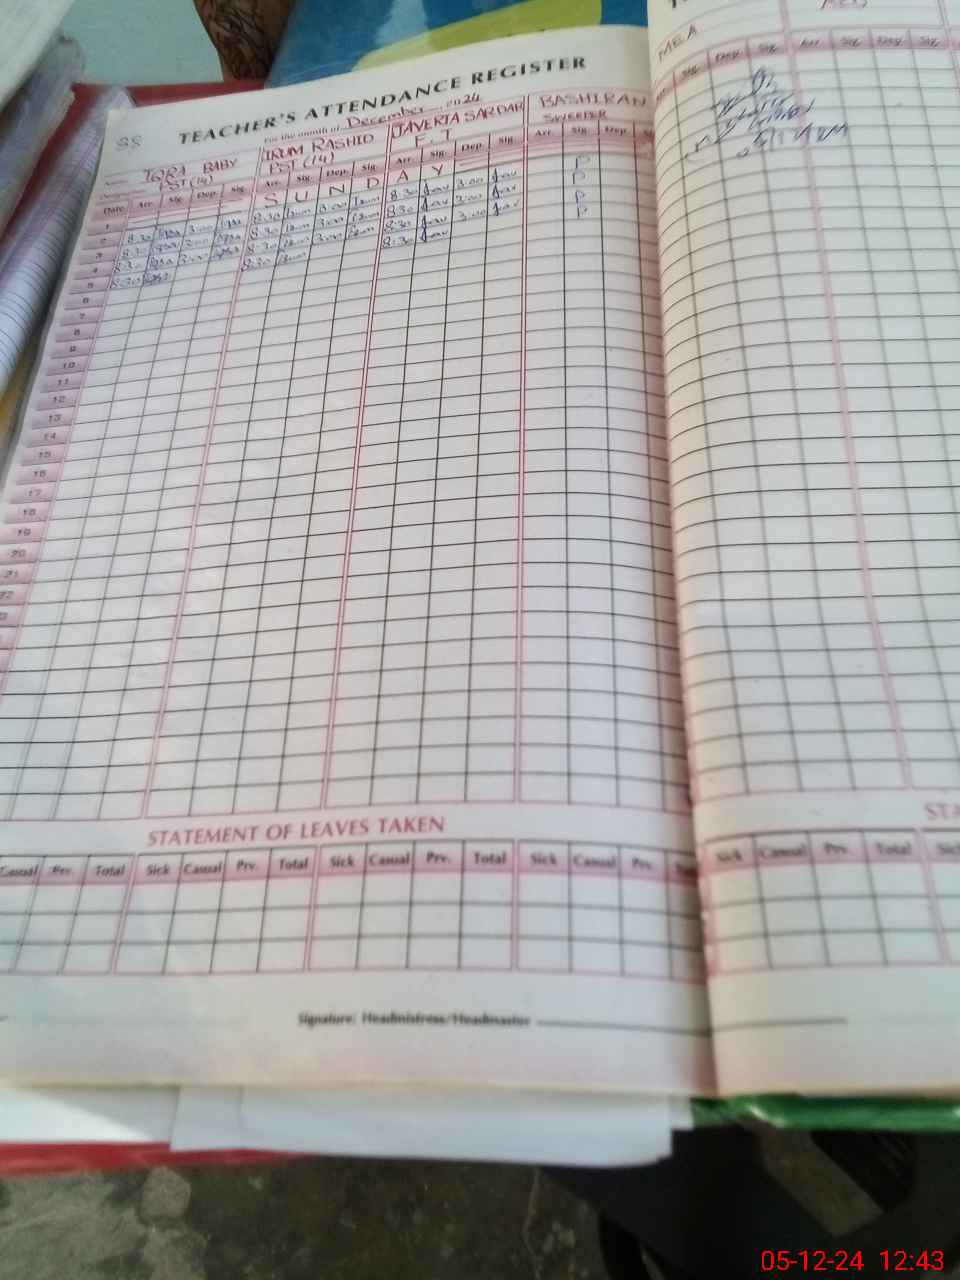 TEACHER'S ATTENDANCE REGISTER
For the month of December 2024
IQRA BABY IRUM RASHID JAVERIA SARDAR BASHIRAN
PST (14) PST (14) F.T SWEEPER
MEA
Date Arr. Sig. Dep. Sig. Arr. Sig. Dep. Sig. Arr. Sig. Dep. Sig. Arr. Sig. Dep.
Sig. Dep. Sig. Arr. Sig. Dep. Sig.
1 S U N D A Y P
2 8:30 Iqra 3:00 Iqra 8:30 Irum 3:00 Irum 8:30 Jav 3:00 Jav P
3 8:30 Iqra 3:00 Iqra 8:30 Irum 3:00 Irum 8:30 Jav 3:00 Jav P
4 8:30 Iqra 3:00 Iqra 8:30 Irum 3:00 Irum 8:30 Jav 3:00 Jav P
5 8:30 Iqra 8:30 Irum 8:30 Jav
6
7
8
9
10
11
12
13
14
15
16
17
18
19
20
21
22
STATEMENT OF LEAVES TAKEN
Casual Prv. Total Sick Casual Prv. Total Sick Casual Prv. Total Sick Casual Prv.
Sick Casual Prv. Total
Signature: Headmistress/Headmaster
05-12-24 12:43